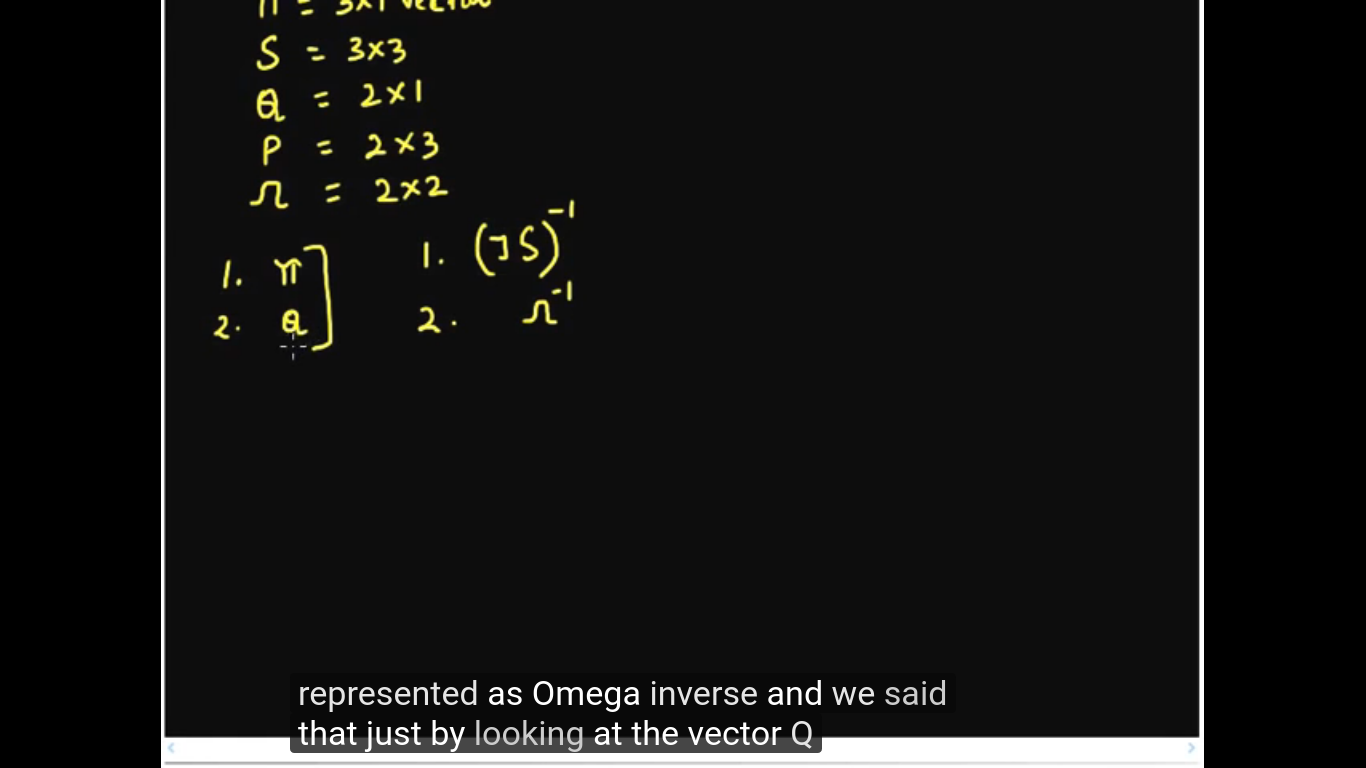 Π = 3×1 vector
S = 3×3
Q = 2×1
P = 2×3
Ω = 2×2
1. Π 1. (τS)⁻¹
2. Q 2. Ω⁻¹
represented as Omega inverse and we said
that just by looking at the vector Q